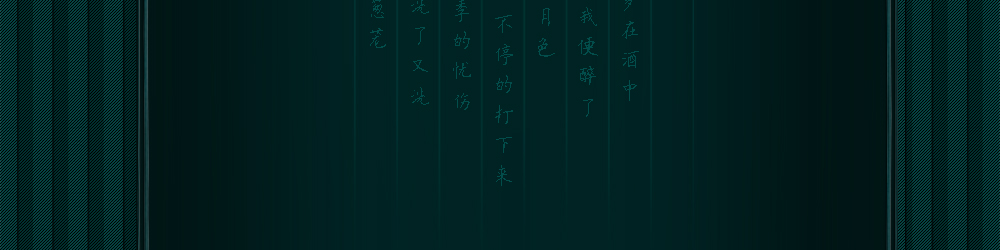 在酒中
我便醉了
月色
不停的打下来
季的忧伤
了又
葱茏